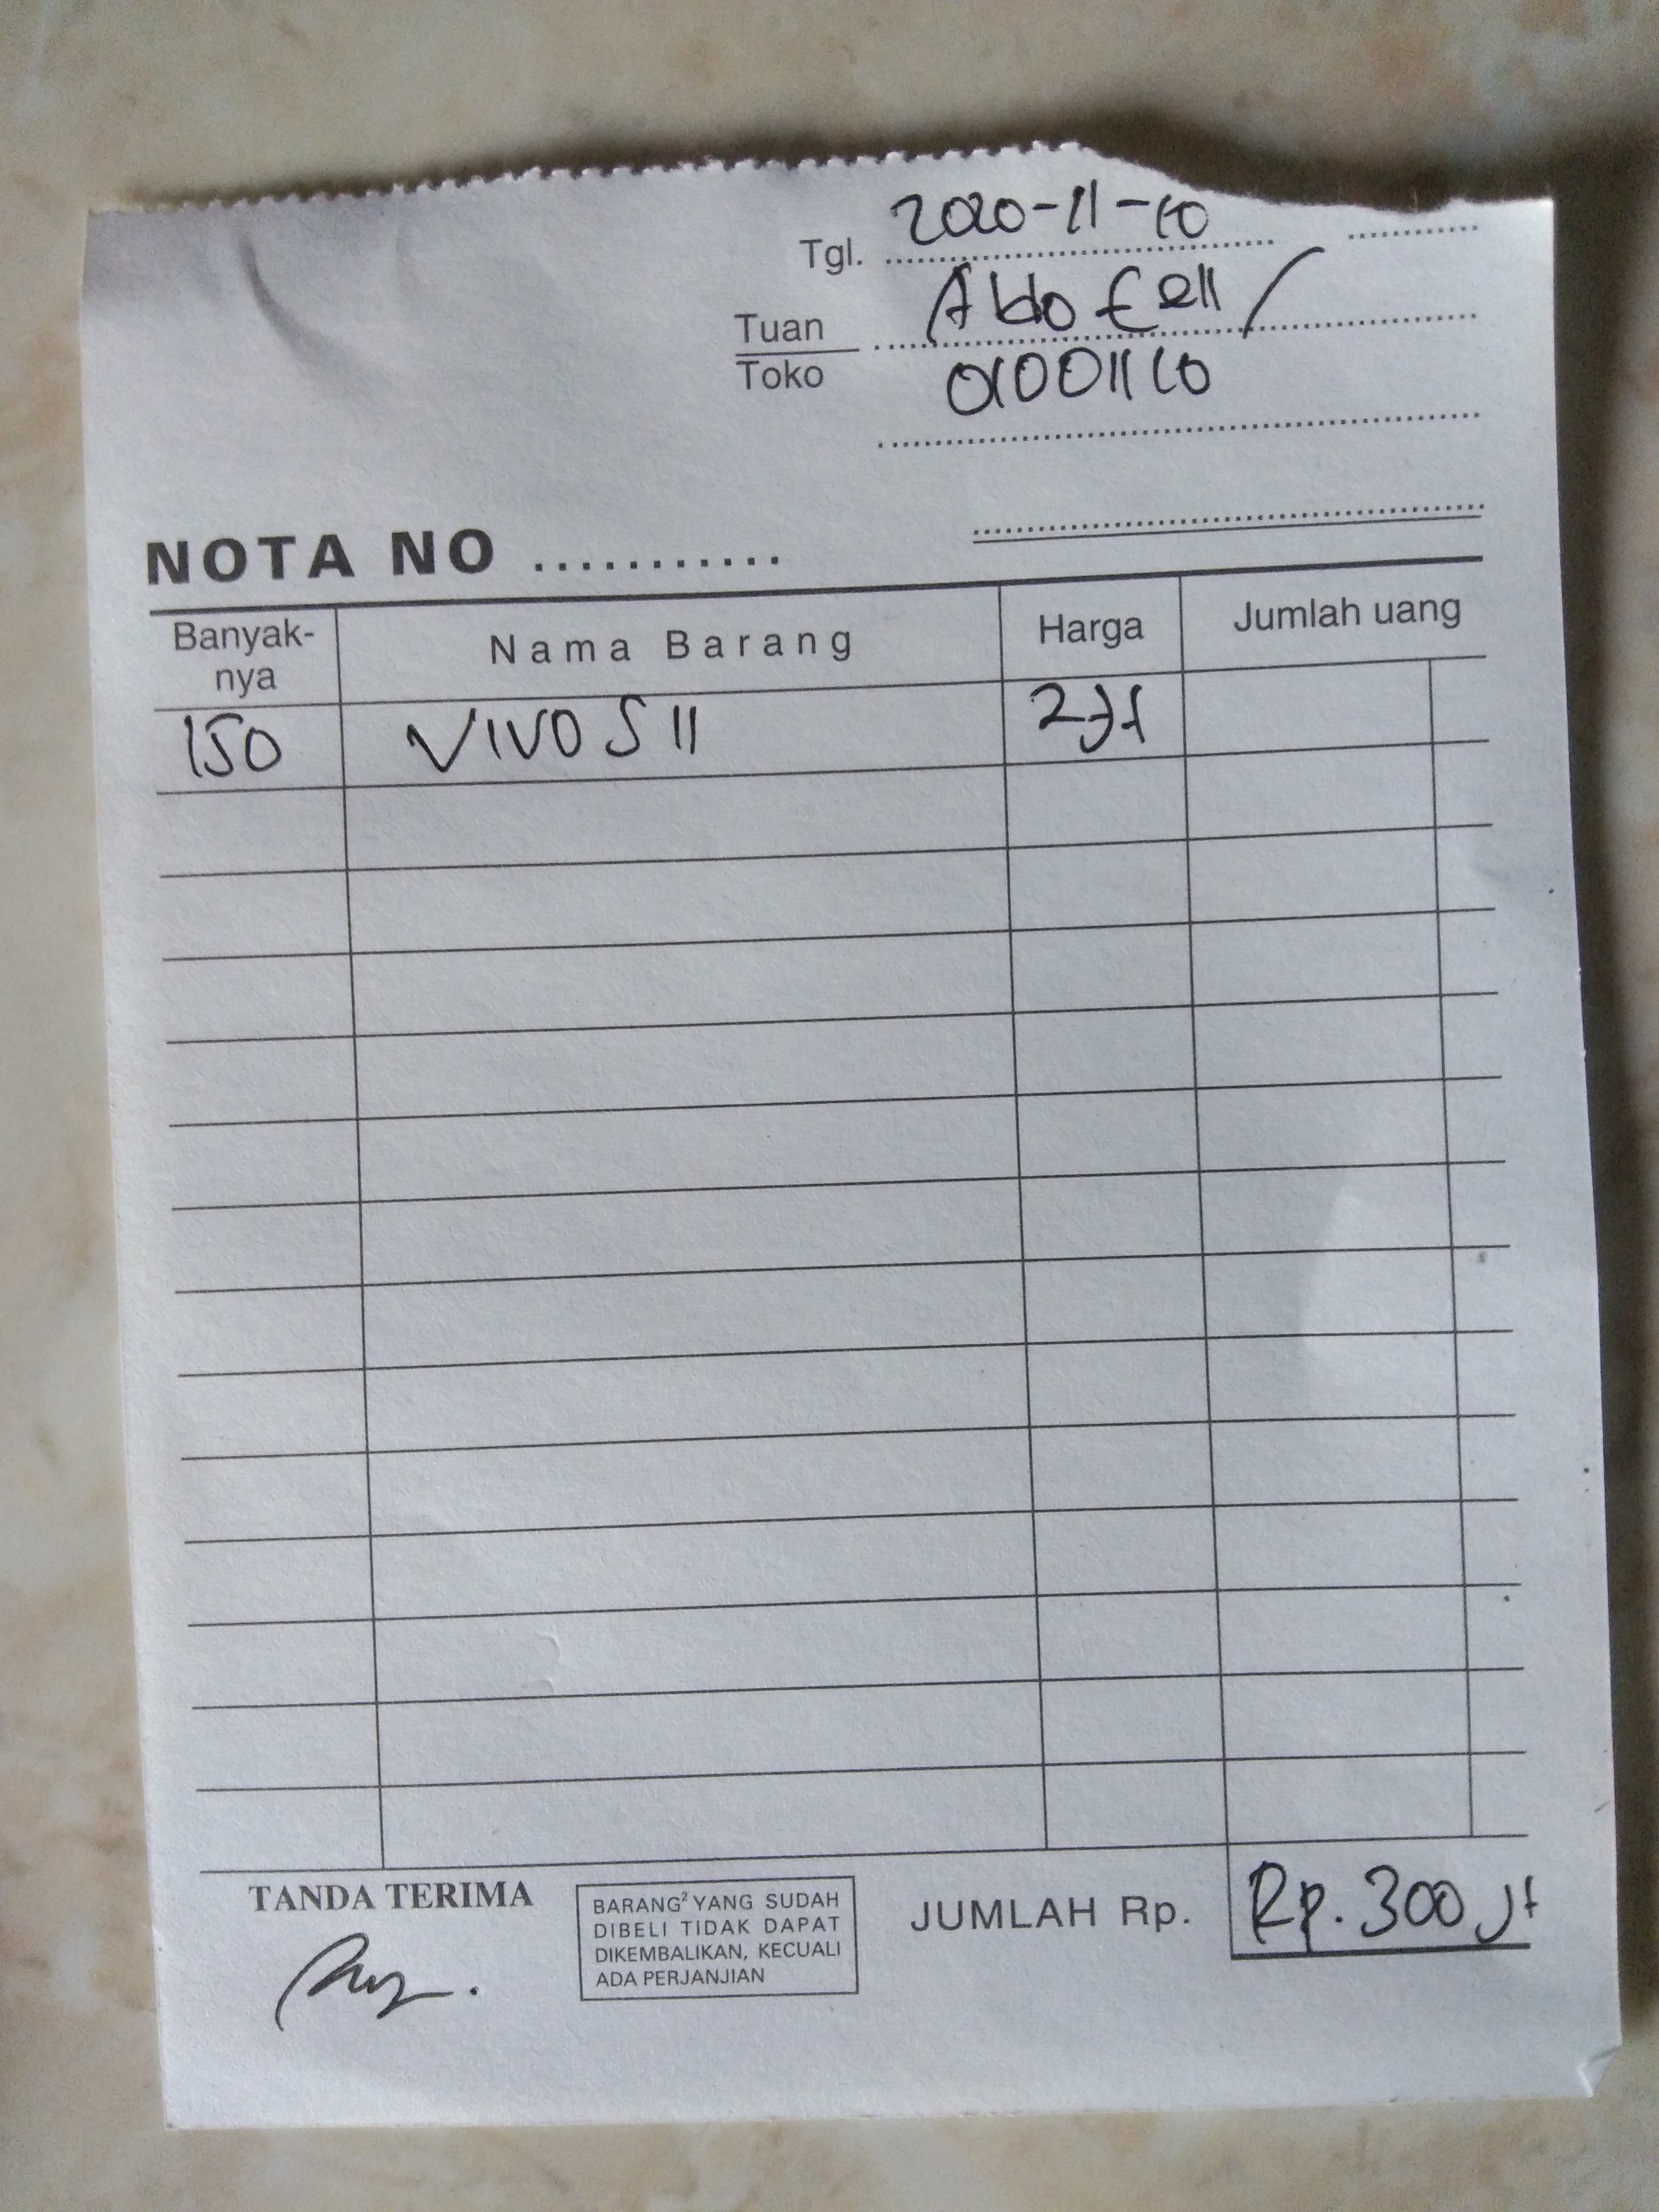 Tgl. 2020-11-10
Tuan Aldo Cell /
Toko 01001110
NOTA NO ...........
Banyak-nya Nama Barang Harga Jumlah uang
150 VIVO S11 2 jt
TANDA TERIMA
BARANG² YANG SUDAH
DIBELI TIDAK DAPAT
DIKEMBALIKAN, KECUALI
ADA PERJANJIAN
JUMLAH Rp. Rp. 300 jt